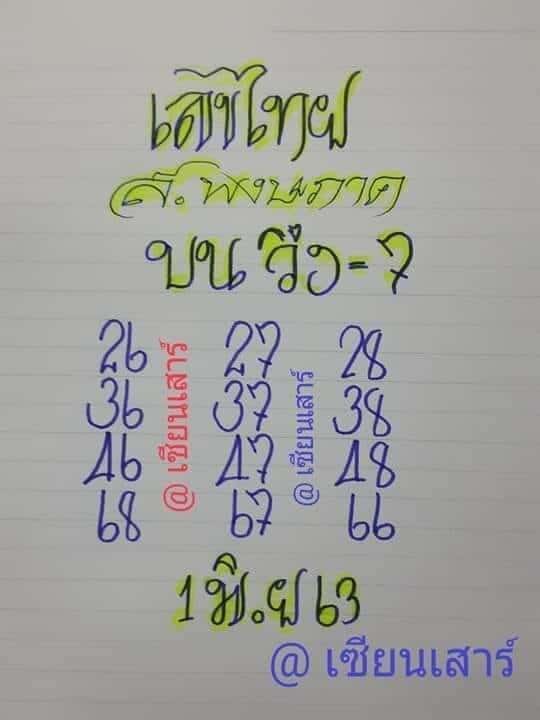 เลขไทย
ส. พงษภาค
บน วิ่ง = 7
26 27 28
36 37 38
46 47 48
68 67 66
@ เซียนเสาร์
@ เซียนเสาร์
1 มิ.ย 63
@ เซียนเสาร์